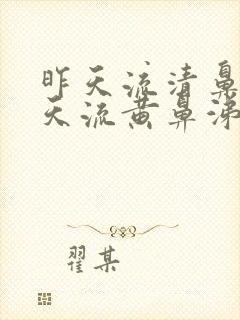 昨天流清鼻
天流黄鼻涕
翟某